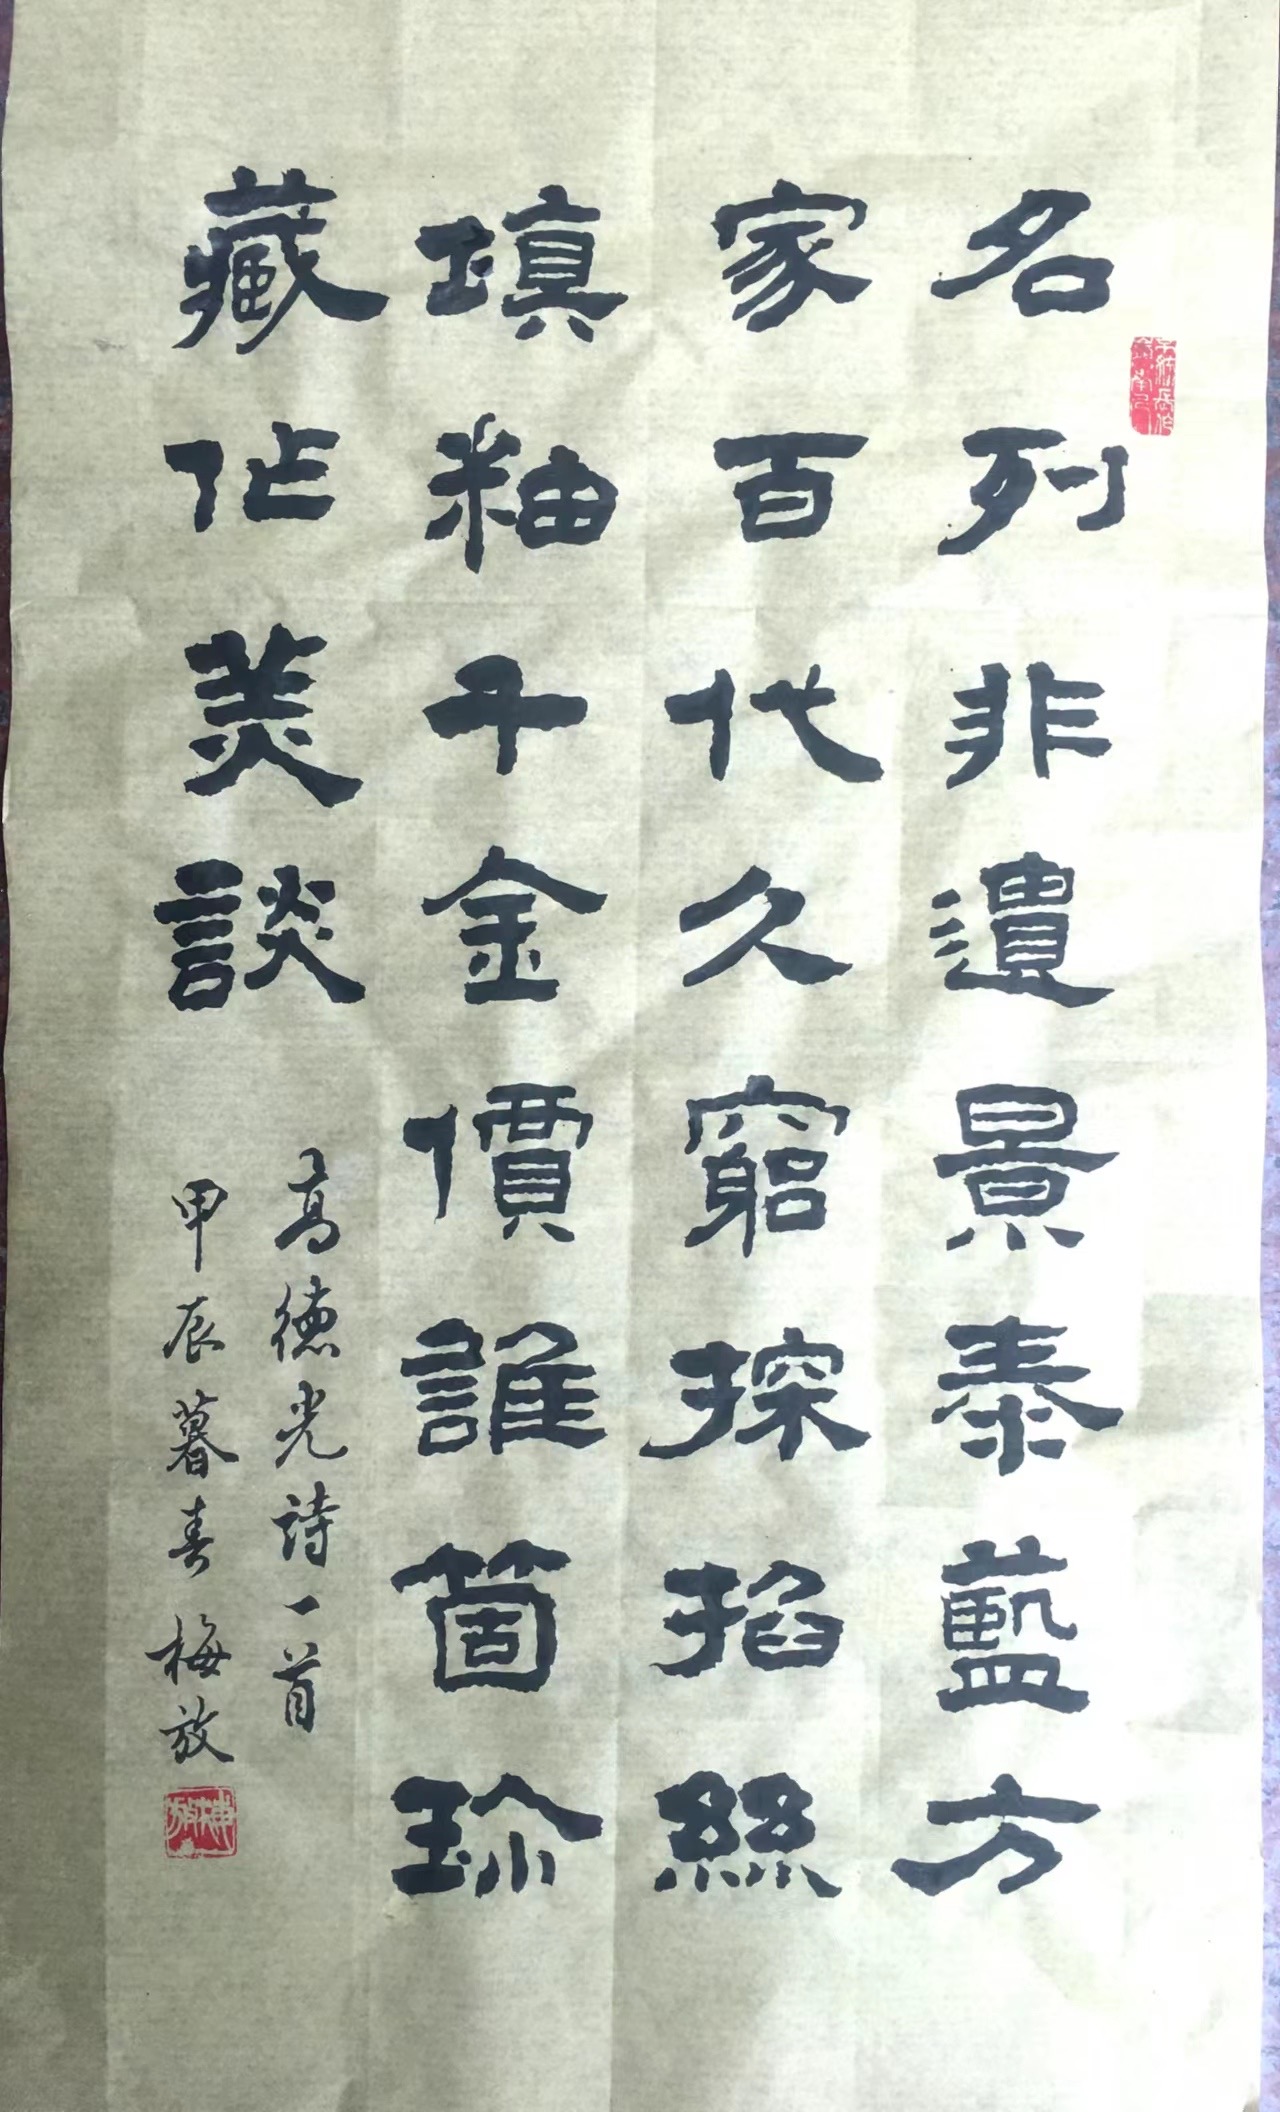 名列非遺景泰藍方
家百代久窮探掐絲
填釉千金價誰箇珍
藏作美談
高德光詩一首
甲辰暮春 梅放
梅放